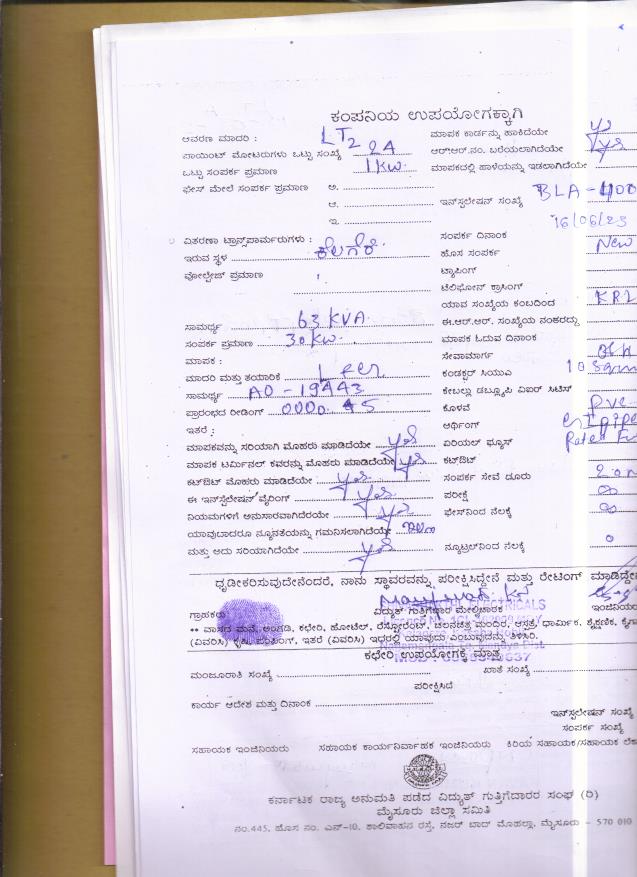 ಕಂಪನಿಯ ಉಪಯೋಗಕ್ಕಾಗಿ
ಆವರಣ ಮಾದರಿ : LT2
ಮಾಪಕ ಕಾರ್ಡನ್ನು ಹಾಕಿದೆಯೇ
ಪಾಯಿಂಟ್ ಮೋಟರುಗಳು ಒಟ್ಟು ಸಂಖ್ಯೆ 24
ಆರ್.ಆರ್.ನಂ. ಬರೆಯಲಾಗಿದೆಯೇ yes
ಒಟ್ಟು ಸಂಪರ್ಕ ಪ್ರಮಾಣ 1kw
ಮಾಪಕದಲ್ಲಿ ಹಾಳೆಯನ್ನು ಇಡಲಾಗಿದೆಯೇ
ಫೇಸ್ ಮೇಲೆ ಸಂಪರ್ಕ ಪ್ರಮಾಣ ಅ.
ಆ.
ಇನ್‌ಸ್ಟಲೇಷನ್ ಸಂಖ್ಯೆ BLA-400
ಇ.
16/06/23
ವಿತರಣಾ ಟ್ರಾನ್ಸ್‌ಪಾರ್ಮರುಗಳು :
ಸಂಪರ್ಕ ದಿನಾಂಕ
ಇರುವ ಸ್ಥಳ ಕೆಲಗೆರೆ
ಹೊಸ ಸಂಪರ್ಕ New
ವೋಲ್ಟೇಜ್ ಪ್ರಮಾಣ
ಟ್ಯಾಪಿಂಗ್
ಟೆಲಿಫೋನ್ ಕ್ರಾಸಿಂಗ್
ಯಾವ ಸಂಖ್ಯೆಯ ಕಂಬದಿಂದ
ಸಾಮರ್ಥ್ಯ 63 KVA
ಈ.ಆರ್.ಆರ್. ಸಂಖ್ಯೆಯ ನಂತರದ್ದು
ಸಂಪರ್ಕ ಪ್ರಮಾಣ 30kw
ಮಾಪಕ ಓದುವ ದಿನಾಂಕ
ಮಾಪಕ :
ಸೇವಾಮಾರ್ಗ
ಮಾದರಿ ಮತ್ತು ತಯಾರಿಕೆ
ಕಂಡಕ್ಟರ್ ಸಿಯುವಿ
ಸಾಮರ್ಥ್ಯ AO-19443
ಕೇಬಲ್ಲು ಡಬ್ಲ್ಯೂಪಿ ವಿಐರ್ ಸಿಟಿಸ್
ಪ್ರಾರಂಭದ ರೀಡಿಂಗ್ 0000.45
ಕೊಳವೆ
ಇತರೆ :
ಆರ್ಥಿಂಗ್
ಮಾಪಕವನ್ನು ಸರಿಯಾಗಿ ಮೊಹರು ಮಾಡಿದೆಯೇ yes
ಏರಿಯಲ್ ಫ್ಯೂಸ್ Rated
ಮಾಪಕ ಟರ್ಮಿನಲ್ ಕವರನ್ನು ಮೊಹರು ಮಾಡಿದೆಯೇ yes
ಕಟ್‌ಔಟ್
ಕಟ್‌ಔಟ್ ಮೊಹರು ಮಾಡಿದೆಯೇ yes
ಸಂಪರ್ಕ ಸೇವೆ ದೂರು
ಈ ಇನ್‌ಸ್ಟಲೇಷನ್ ವೈರಿಂಗ್ yes
ಪರೀಕ್ಷೆ ∞
ನಿಯಮಗಳಿಗೆ ಅನುಸಾರವಾಗಿದೆರೆಯೇ yes
ಫೇಸ್‌ನಿಂದ ನೆಲಕ್ಕೆ ∞
ಯಾವುದಾದರೂ ನ್ಯೂನತೆಯನ್ನು ಗಮನಿಸಲಾಗಿದೆಯೇ
ಮತ್ತು ಅದು ಸರಿಯಾಗಿದೆಯೇ yes
ನ್ಯೂಟ್ರಲ್‌ನಿಂದ ನೆಲಕ್ಕೆ 0
ಧೃಡೀಕರಿಸುವುದೇನೆಂದರೆ, ನಾನು ಸ್ಥಾವರವನ್ನು ಪರೀಕ್ಷಿಸಿದ್ದೇನೆ ಮತ್ತು ರೇಟಿಂಗ್ ಮಾಡಿದ್ದೇನೆ
ಗ್ರಾಹಕರು ವಿದ್ಯುತ್ ಗುತ್ತಿಗೆದಾರ ಮೇಲ್ವಿಚಾರಕ ಇಂಜಿನಿಯ
** ವಾಸದ ಮನೆ, ಅಂಗಡಿ, ಕಛೇರಿ, ಹೋಟೆಲ್, ರೆಸ್ಟೋರೆಂಟ್, ಚಲನಚಿತ್ರ ಮಂದಿರ, ಆಸ್ಪತ್ರೆ, ಧಾರ್ಮಿಕ, ಶೈಕ್ಷಣಿಕ, ಕೈಗಾ
(ವಿವರಿಸಿ) ಕೃಷಿ, ಪಂಪಿಂಗ್, ಇತರೆ (ವಿವರಿಸಿ) ಇಧರಲ್ಲಿ ಯಾವುದು ಎಂಬುವುದನ್ನು ತಿಳಿಸಿರಿ.
ಕಛೇರಿ ಉಪಯೋಗಕ್ಕೆ ಮಾತ್ರ
ಮಂಜೂರಾತಿ ಸಂಖ್ಯೆ ಖಾತೆ ಸಂಖ್ಯೆ
ಪರೀಕ್ಷಿಸಿದೆ
ಕಾರ್ಯ ಆದೇಶ ಮತ್ತು ದಿನಾಂಕ
ಇನ್‌ಸ್ಟಲೇಷನ್ ಸಂಖ್ಯೆ
ಸಂಪರ್ಕ ಸಂಖ್ಯೆ
ಸಹಾಯಕ ಇಂಜಿನಿಯರು ಸಹಾಯಕ ಕಾರ್ಯನಿರ್ವಾಹಕ ಇಂಜಿನಿಯರು ಕಿರಿಯ ಸಹಾಯಕ/ಸಹಾಯಕ ಲೆಕ
ಕರ್ನಾಟಕ ರಾಜ್ಯ ಅನುಮತಿ ಪಡೆದ ವಿದ್ಯುತ್ ಗುತ್ತಿಗೆದಾರರ ಸಂಘ (ರಿ)
ಮೈಸೂರು ಜಿಲ್ಲಾ ಸಮಿತಿ
ನಂ.445, ಹೊಸ ನಂ. ಎನ್-10, ಶಾಲಿವಾಹನ ರಸ್ತೆ, ನಜರ್ ಬಾದ್ ಮೊಹಲ್ಲಾ, ಮೈಸೂರು - 570 010